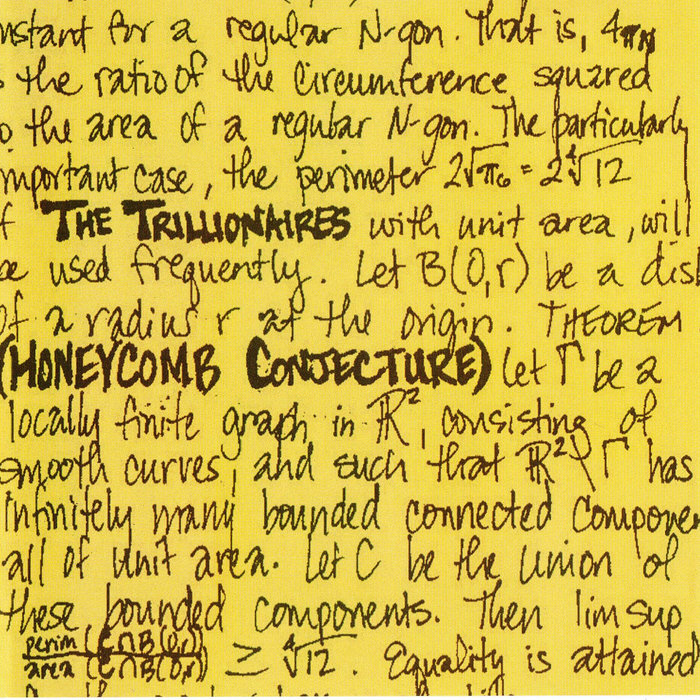 nstant for a regular N-gon. That is, 4πN
the ratio of the circumference squared
o the area of a regular N-gon. The particularly
mportant case, the perimeter 2√π6 = 2∜12
f THE TRILLIONAIRES with unit area, will
e used frequently. Let B(0,r) be a dis
of a radius r at the origin. THEOREM
(HONEYCOMB CONJECTURE) Let Γ be a
locally finite graph in ℝ², consisting of
smooth curves, and such that ℝ²\Γ has
infinitely many bounded connected Compone
all of unit area. Let C be the union of
these bounded components. Then lim sup
perim (C∩B(0,r))
area (C∩B(0,r)) ≥ ∜12. Equality is attained